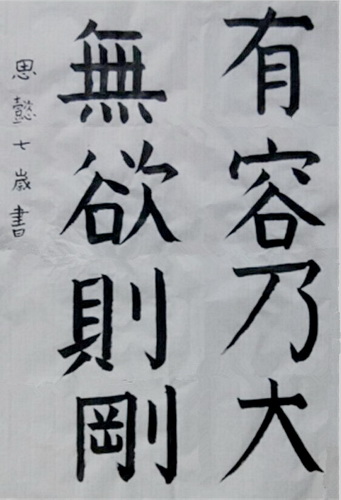 有容乃大
無欲則剛
思懿七歲書